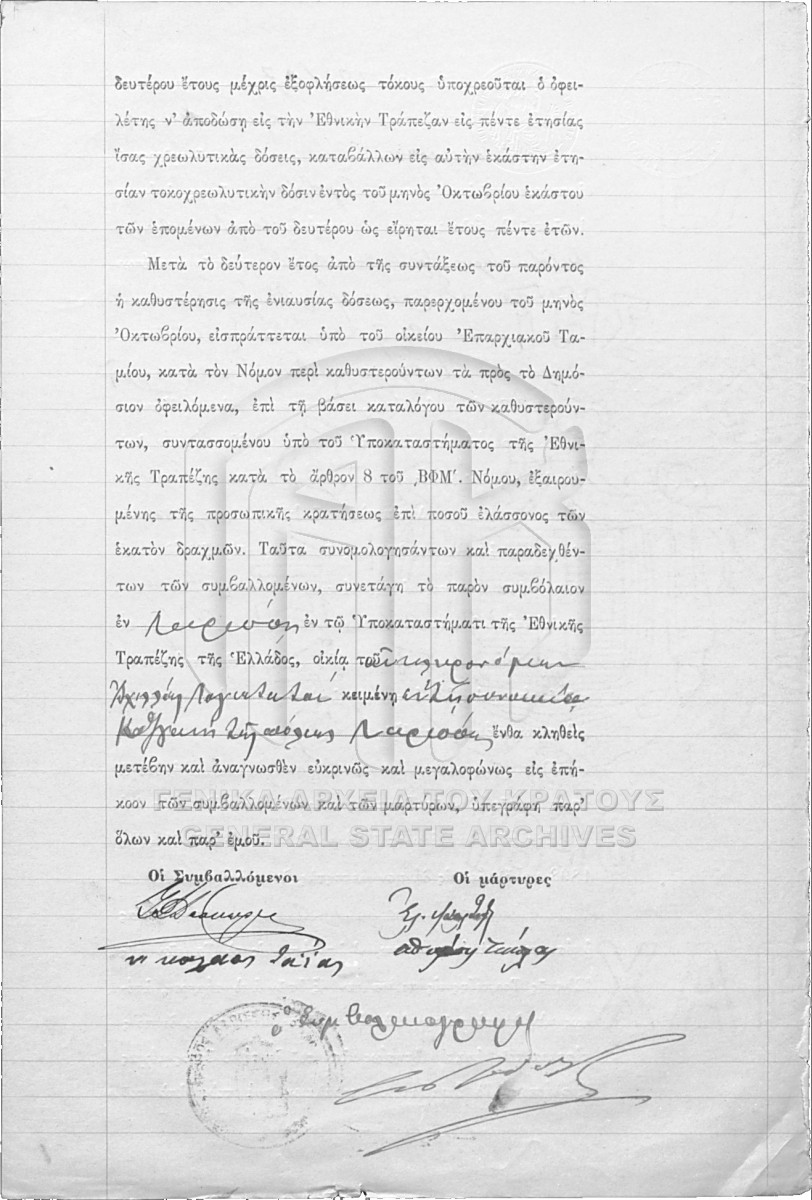 δευτέρου ἔτους μέχρις ἐξοφλήσεως τόκους ὑποχρεοῦται ὁ ὀφει-
λέτης ν’ ἀποδώσῃ εἰς τὴν Ἐθνικὴν Τράπεζαν εἰς πέντε ἐτησίας
ἴσας χρεωλυτικὰς δόσεις, καταβάλλων εἰς αὐτὴν ἑκάστην ἐτη-
σίαν τοκοχρεωλυτικὴν δόσιν ἐντὸς τοῦ μηνὸς Ὀκτωβρίου ἑκάστου
τῶν ἑπομένων ἀπὸ τοῦ δευτέρου ὡς εἴρηται ἔτους πέντε ἐτῶν.
Μετὰ τὸ δεύτερον ἔτος ἀπὸ τῆς συντάξεως τοῦ παρόντος
ἡ καθυστέρησις τῆς ἐνιαυσίας δόσεως, παρερχομένου τοῦ μηνὸς
Ὀκτωβρίου, εἰσπράττεται ὑπὸ τοῦ οἰκείου Ἐπαρχιακοῦ Τα-
μίου, κατὰ τὸν Νόμον περὶ καθυστερούντων τὰ πρὸς τὸ Δημό-
σιον ὀφειλόμενα, ἐπὶ τῇ βάσει καταλόγου τῶν καθυστερούν-
των, συντασσομένου ὑπὸ τοῦ Ὑποκαταστήματος τῆς Ἐθνι-
κῆς Τραπέζης κατὰ τὸ ἄρθρον 8 τοῦ ͵ΒΦΜ΄. Νόμου, ἐξαιρου-
μένης τῆς προσωπικῆς κρατήσεως ἐπὶ ποσοῦ ἐλάσσονος τῶν
ἑκατὸν δραχμῶν. Ταῦτα συνομολογησάντων καὶ παραδεχθέν-
των τῶν συμβαλλομένων, συνετάγη τὸ παρὸν συμβόλαιον
ἐν Λαρίσσῃ ἐν τῷ Ὑποκαταστήματι τῆς Ἐθνικῆς
Τραπέζης τῆς Ἑλλάδος, οἰκίᾳ τοῦ κληρονόμων
κειμένῃ ἐν τῇ συνοικίᾳ
τῆς πόλεως Λαρίσσης ἔνθα κληθεὶς
μετέβην καὶ ἀναγνωσθὲν εὐκρινῶς καὶ μεγαλοφώνως εἰς ἐπή-
κοον τῶν συμβαλλομένων καὶ τῶν μάρτυρων, ὑπεγράφη παρ’
ὅλων καὶ παρ’ ἐμοῦ.
ΓΕΝΙΚΑ ΑΡΧΕΙΑ ΤΟΥ ΚΡΑΤΟΥΣ
GENERAL STATE ARCHIVES
Οἱ Συμβαλλόμενοι Οἱ μάρτυρες
Ὁ Συμβολαιογράφος